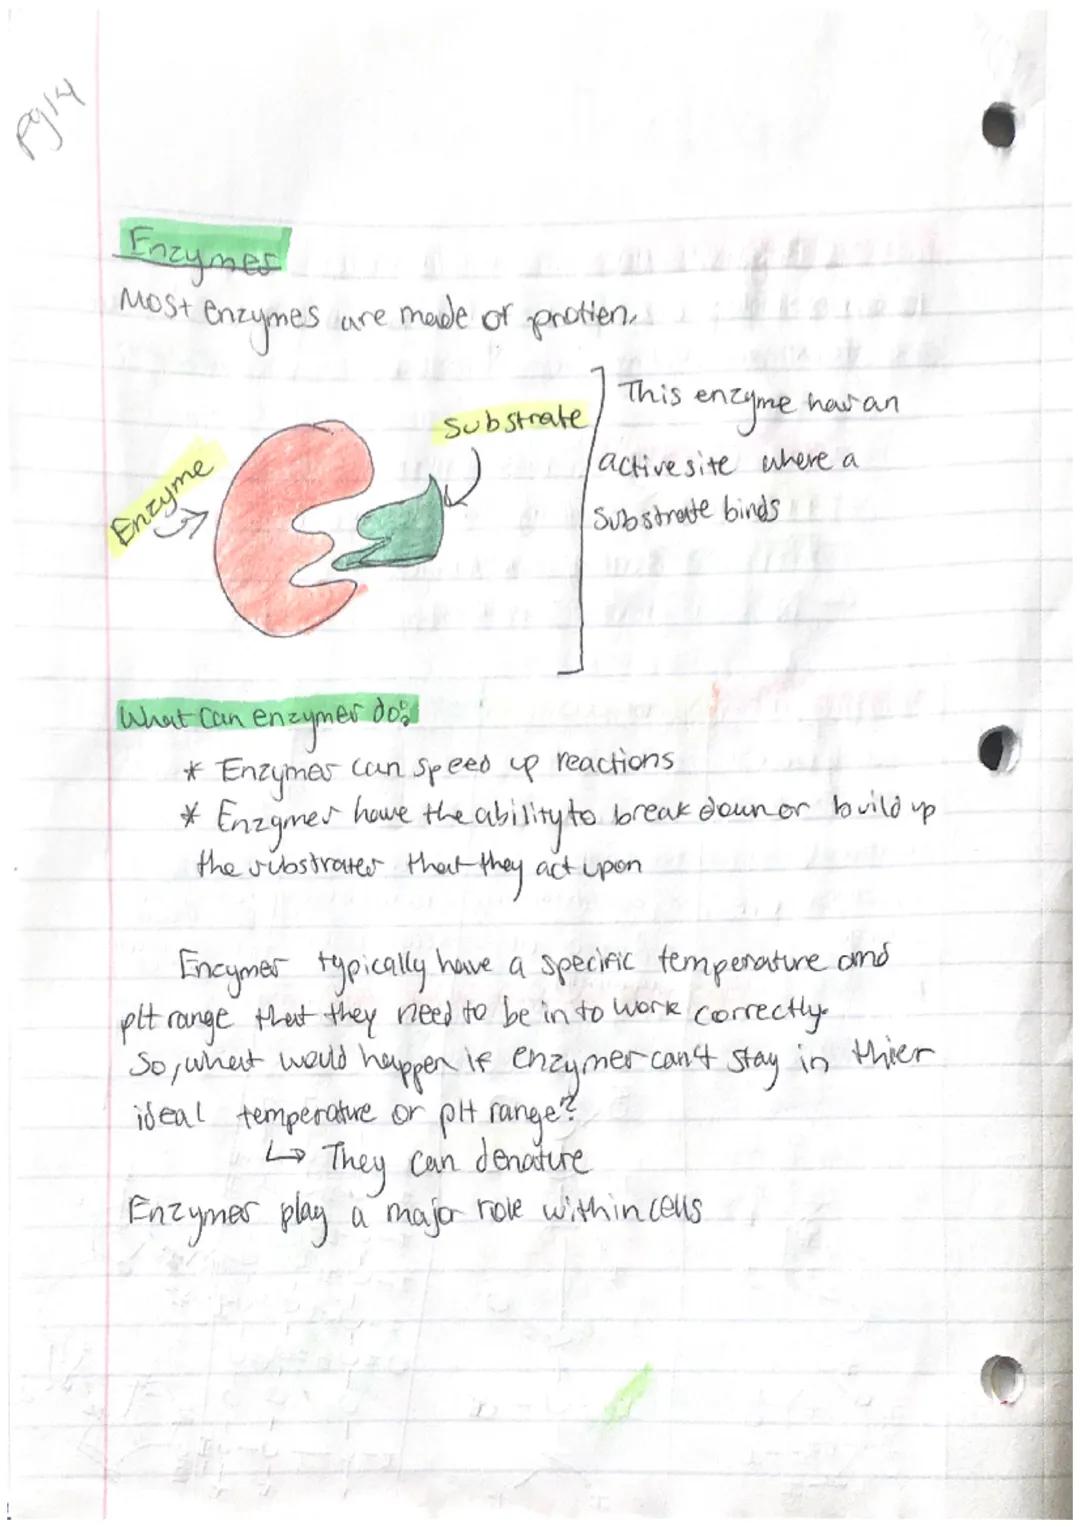 pg14
Enzymes
Most enzymes are made of protien.
Substrate
Enzyme
This enzyme has an
active site where a
Substrate binds
What can enzymes do?
* Enzymes can speed up reactions
* Enzymes have the ability to break down or build up
the substrates that they act upon
Encymes typically have a specific temperature and
pH range that they need to be in to work correctly.
So, what would happen if enzymes can't stay in thier
ideal temperature or pH range?
↳ They can denature
Enzymes play a major role within cells